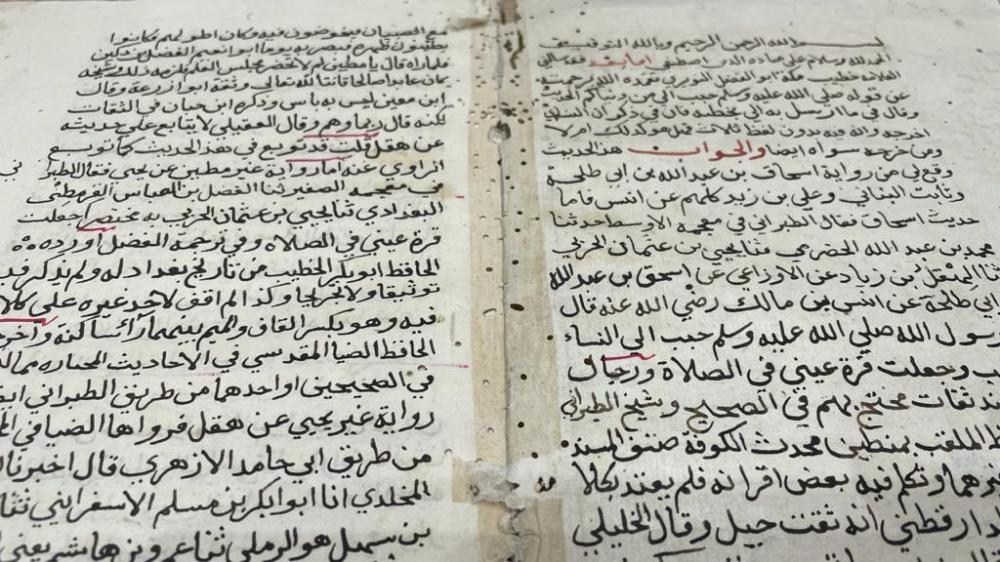 بسم الله الرحمن الرحيم وبالله التوفيق
الحمد لله وسلام على عباده الذين اصطفى اما بعد فقد سالني
العلامة خطيب مكة ابو الفضل النويري تغمده الله برحمته
عن قوله صلي الله عليه وسلم حبب الي من دنياكم الحديث
وقال في ما ارسل به الي بخطه قال في ذكر ان النسائي
اخرجه وانه فيه بدون لفظ ثلاث فهل هو كذلك ام لا
ومن خرجه سواه ايضا والجواب هذ الحديث
وقع لي من رواية اسحاق بن عبد الله بن ابي طلحة
وثابت البناني وعلي بن زيد كلهم عن انس فاما
حديث اسحاق فقال الطبراني في معجمه الاوسط حدثنا
محمد بن عبد الله الحضرمي ثنا يحيي بن عثمان الحربي
ثنا الهقل بن زياد عن الاوزاعي عن اسحق بن عبد الله
ابي طلحة عن انس بن مالك رضي الله عنه قال
رسول الله صلي الله عليه وسلم حبب الي النساء
وجعلت قرة عيني في الصلاة ورجال
ثقات محتج بهم في الصحيح وشيخ الطبراني
الملقب بمطين محدث الكوفة صنف المسند
وغيرهما وتكلم فيه بعض اقرانه فلم يعتد بكلا
الدارقطني انه ثقت جبل وقال الخليلي
مع الصبيان يخوضون فيه وكان اطولهم فكانوا
يطينون ظهره فبصر به يوما ابو نعيم الفضل بن دكين
فلما راه قال يا مطين لم لا تحضر مجلس العلم
ثقة تعالى وثقه ابو زرعة وقال
ابن معين ليس به باس وذكره ابن حبان في الثقات
لكنه قال ربما وهم وقال العقيلي لا يتابع علي حديثه
عن هقل قلت قد توبع في هذ الحديث كما توبع
الراوي عنه اما رواية غير مطين عن يحيي فقال الطبرا ني
في معجمه الصغير ثنا الفضل بن العباس القرطمي
البغدادي ثنا يحيي بن عثمان الحربي به مختصرا جعلت
قرة عيني في الصلاة وفي ترجمة الفضل اورده
الحافظ ابو بكر الخطيب من تاريخ بغداد له ولم يذكر فيه
توثيقا ولا تجريحا وكذا لم اقف لاحد غيره علي كلام
فيه وهو بكسر القاف والميم بينهما راء ساكنة واخرج
الحافظ الضيا المقدسي في الاحاديث المختاره مما ل
في الصحيحين او احدهما من طريق الطبراني ايضا
رواية غير يحيي عن هقل فرواها الضيا في
من طريق ابي حامد الازهري قال اخبرنا
المخلدي انا ابو بكر بن مسلم الاسفرايني ثنا
بن سهيل هو الرملي ثنا عمرو بن هاشم يعني